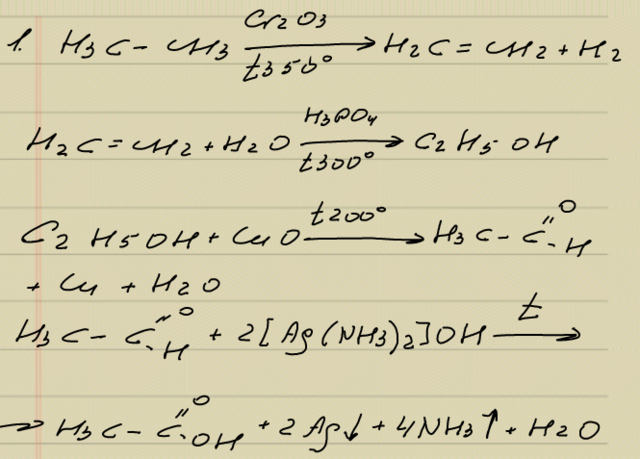 1. H3C - CH3 Cr2O3 t350° → H2C = CH2 + H2
H2C = CH2 + H2O H3PO4 t300° → C2H5OH
C2H5OH + CuO t200° → H3C - C =O -H
+ Cu + H2O
H3C - C =O -H + 2[Ag(NH3)2]OH t →
→ H3C - C =O -OH + 2Ag↓ + 4NH3↑ + H2O